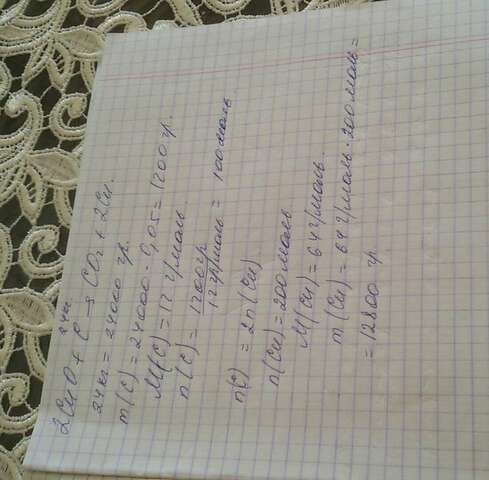 24кг
2CuO + C → CO2 + 2Cu.
24кг = 24000 гр.
m(C) = 24000 · 0,05 = 1200 гр.
M(C) = 12 г/моль.
n(C) = 1200 гр / 12 гр/моль = 100 моль
n(C) = 2n(Cu)
n(Cu) = 200 моль
M(Cu) = 64 г/моль.
m(Cu) = 64 г/моль · 200 моль =
= 12800 гр.